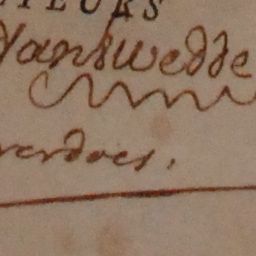 TEURS
Vanswedde
verdoes.